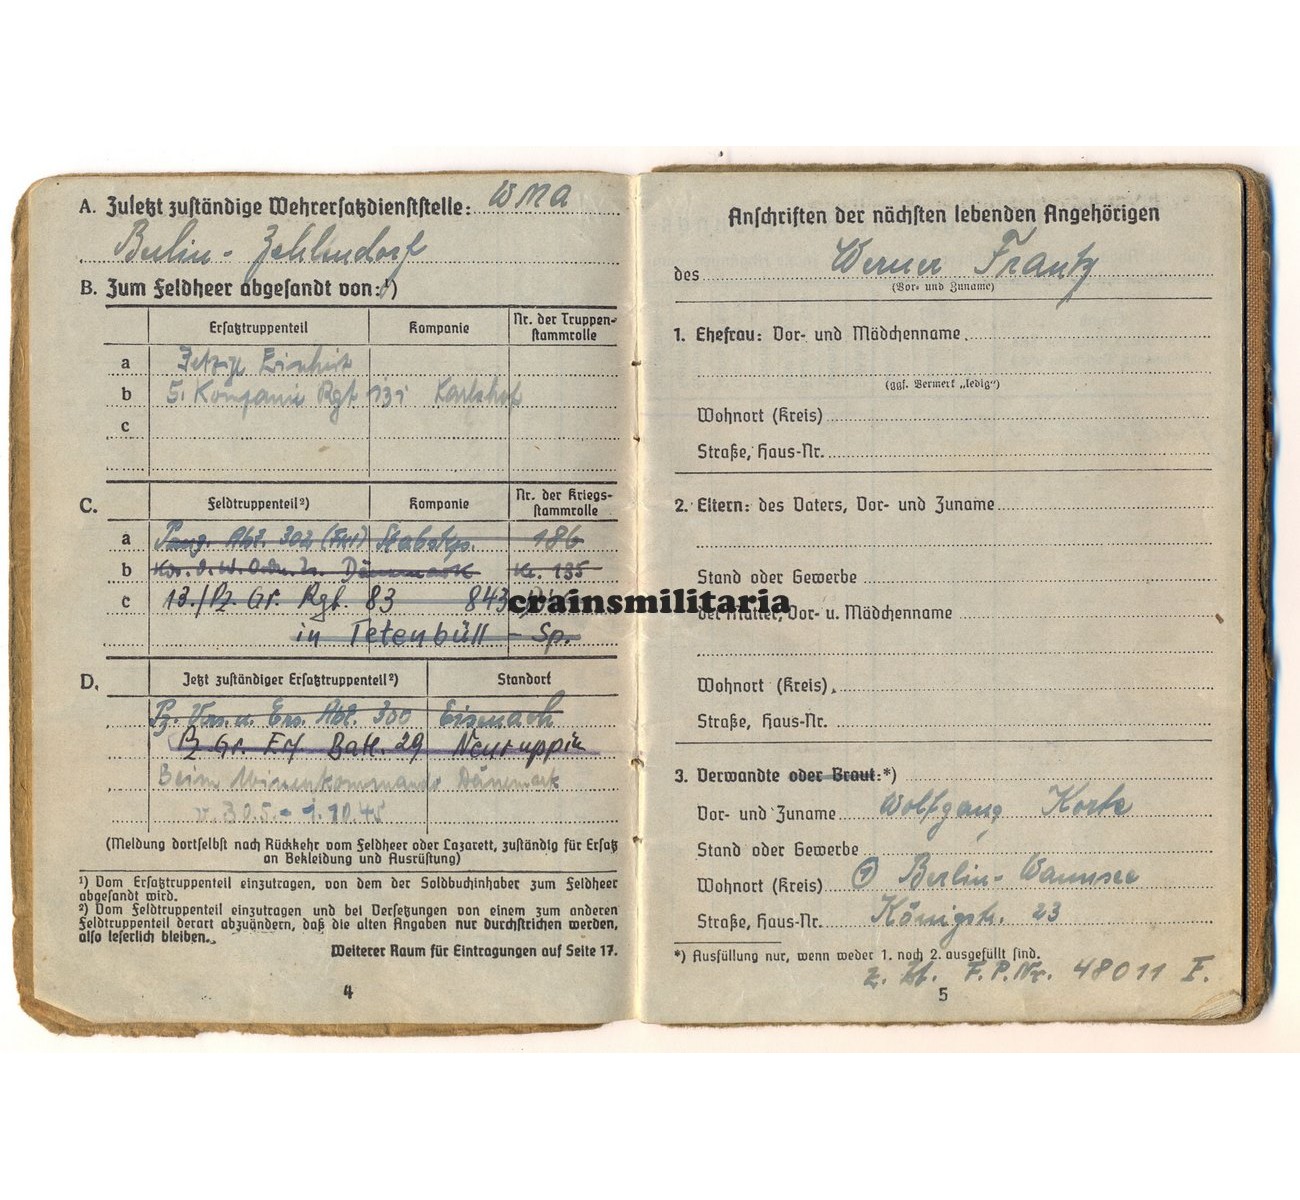 A. Zuletzt zuständige Wehrersatzdienststelle: WMA
Berlin-Zehlendorf
B. Zum Feldheer abgesandt von:¹)
Ersatztruppenteil Kompanie Nr. der Truppen-stammrolle
a
b 5. Kompanie Rgt
c
C. Feldtruppenteil²) Kompanie Nr. der Kriegs-stammrolle
a Panz. Abt. 302 (Fkl) Stabskp. 186
b Dänemark Nr. 135
c 13./Pz. Gr. Rgt. 83 843
in Tetenbüll - Sp.
D. Jetzt zuständiger Ersatztruppenteil²) Standort
Pz. Vers. u. Ers. Abt. 300 Eisenach
Pz. Gr. Ers. Batl. 29 Neuruppin
Beim Minenkommando Dänemark
v. 30.5. - 1.10.45
(Meldung dortselbst nach Rückkehr vom Feldheer oder Lazarett, zuständig für Ersatz
an Bekleidung und Ausrüstung)
¹) Vom Ersatztruppenteil einzutragen, von dem der Soldbuchinhaber zum Feldheer
abgesandt wird.
²) Vom Feldtruppenteil einzutragen und bei Versetzungen von einem zum anderen
Feldtruppenteil derart abzuändern, daß die alten Angaben nur durchstrichen werden,
also leserlich bleiben.
Weiterer Raum für Eintragungen auf Seite 17.
4
Anschriften der nächsten lebenden Angehörigen
des Werner Frantz
(Vor- und Zuname)
1. Ehefrau: Vor- und Mädchenname
(ggf. Vermerk „ledig“)
Wohnort (Kreis)
Straße, Haus-Nr.
2. Eltern: des Vaters, Vor- und Zuname
Stand oder Gewerbe
crainsmilitaria
der Mutter, Vor- u. Mädchenname
Wohnort (Kreis)
Straße, Haus-Nr.
3. Verwandte oder Braut:*)
Vor- und Zuname Wolfgang Korte
Stand oder Gewerbe
Wohnort (Kreis) 1 Berlin-Wannsee
Straße, Haus-Nr. Königstr. 23
*) Ausfüllung nur, wenn weder 1. noch 2. ausgefüllt sind.
z. Zt. F.P.Nr. 48011 F.
5